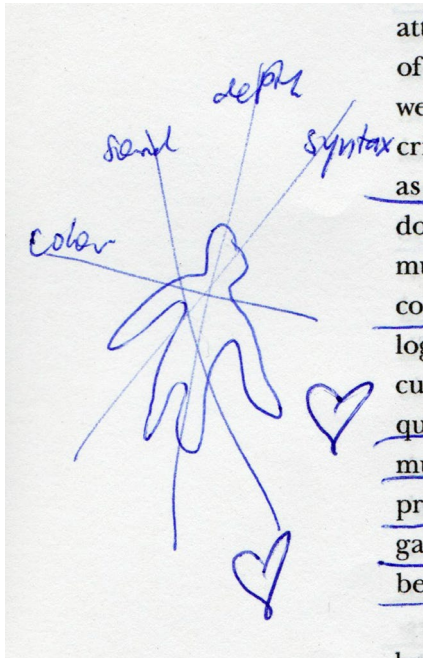 depth
sound
syntax
color
att
of
we
cri
as
do
mu
co
log
cu
qu
mu
pr
ga
be